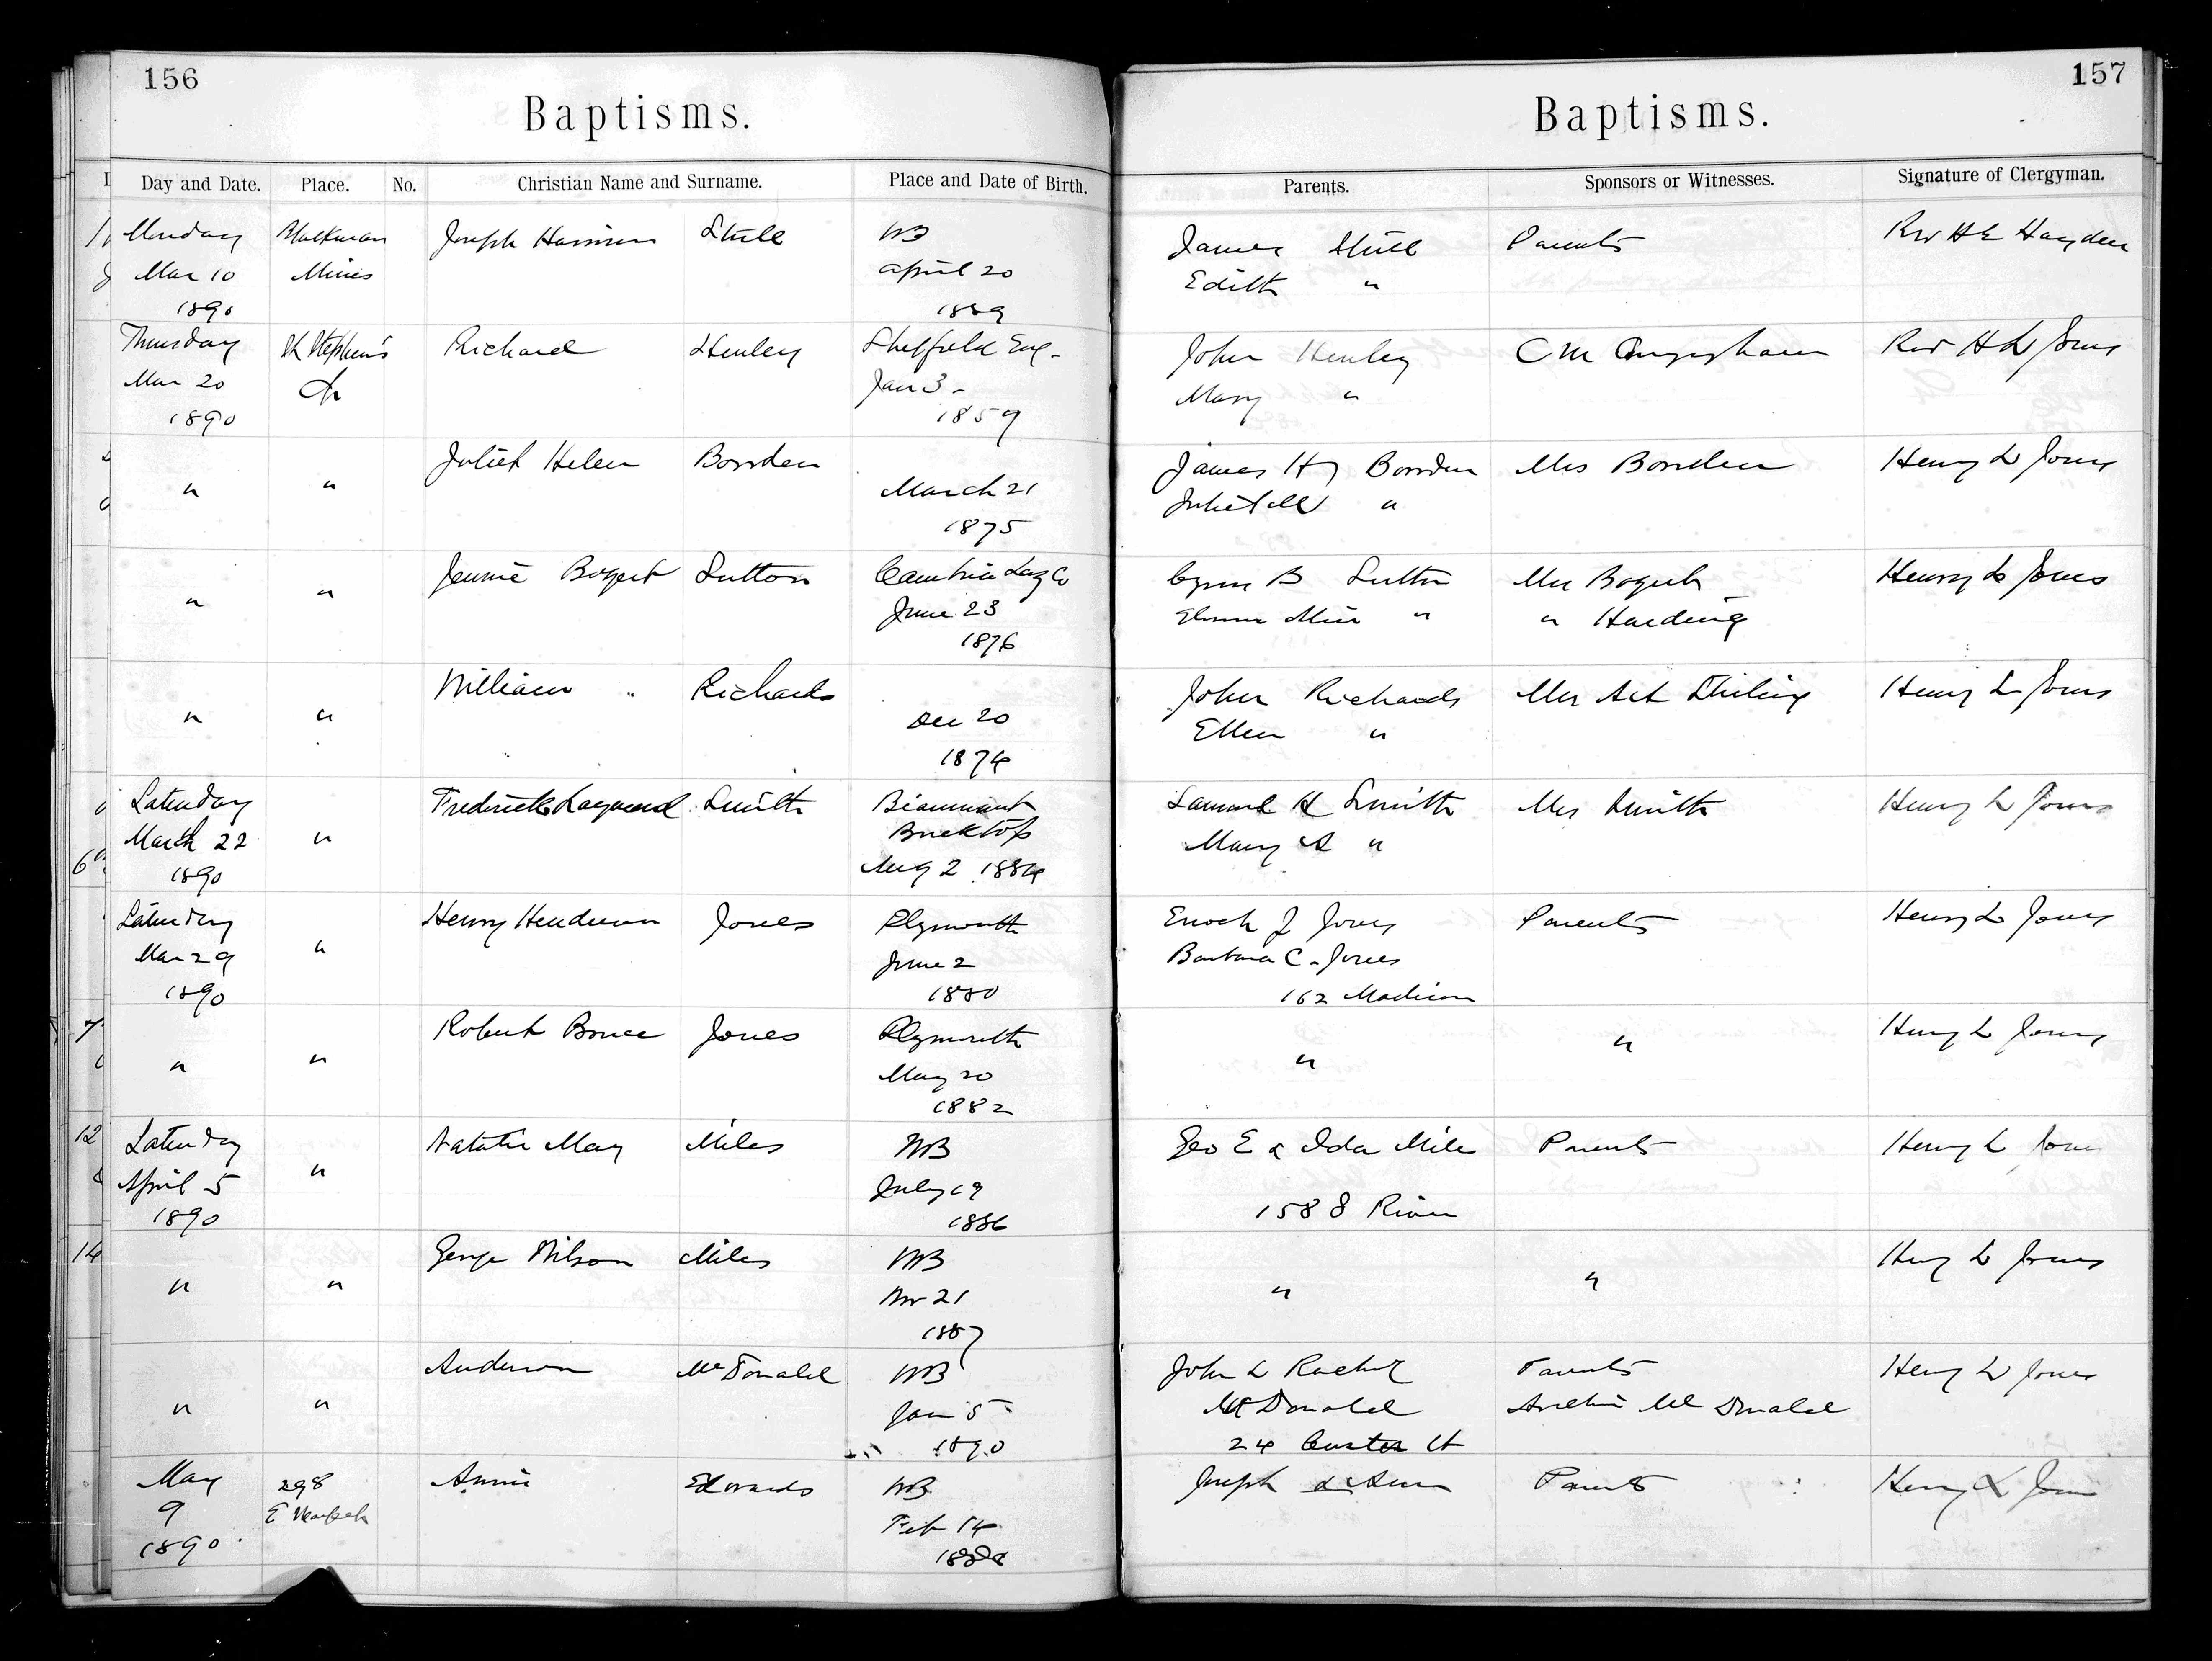 156
Baptisms.
Day and Date. Place. No. Christian Name and Surname. Place and Date of Birth.
Monday Blackman Joseph Harrison Stull WB
Mar 10 Mines April 20
1890 1889
Thursday St Stephen's Richard Henley Sheffield Eng-
Mar 20 Ch Jan 3-
1890 1859
Juliet Helen Bowden
" " March 21
1875
Jennie Bogert Sutton Cambria Luz Co
" " June 23
1876
William " Richards
" " Dec 20
1874
Saturday Frederick Raymond Smith Beaumont
March 22 "
1890 Aug 2 1884
Saturday Henry Henderson Jones Plymouth
Mar 29 " June 2
1890 1880
Robert Bruce Jones Plymouth
" " May 20
1882
Saturday Natalie May Miles WB
April 5 " July 19
1890 1886
George Wilson Miles WB
" " Nov 21
1887
Anderson McDonald WB
" " Jan 5
1890
May 298 Annie Edwards WB
9 E Feb 14
1890
157
Baptisms.
Parents. Sponsors or Witnesses. Signature of Clergyman.
James Stull Parents Rev H E Hayden
Edith "
John Henley C M Rev H L Jones
Mary "
James H Bowden Mrs Bowden Henry L Jones
Juliet M "
Cyrus B Sutton Mrs Bogert Henry L Jones
" " Harding
John Richards Mrs Henry L Jones
Ellen "
Samuel H Smith Mrs Smith Henry L Jones
Mary A "
Enoch J Jones Parents Henry L Jones
Barbara C. Jones
162 Madison
Henry L Jones
" "
Geo E & Ida Miles Parents Henry L Jones
158 S River
Henry L Jones
" "
John & Rachel Parents Henry L Jones
McDonald McDonald
24 Custer St
Joseph & Ann Parents Henry L Jones